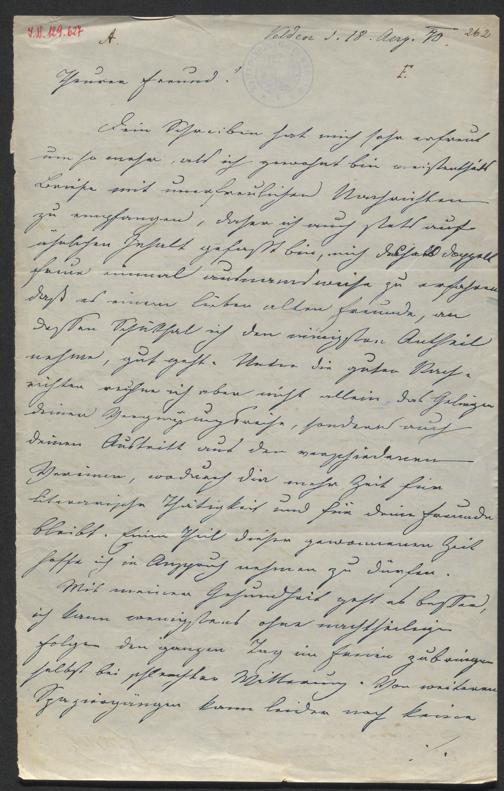 I.N. 129.627
A.
Velden d. 18. Aug. 90.
262
F.
Theurer Freund!
Dein Schreiben hat mich sehr erfreut
um so mehr, als ich gewohnt bin meistentheils
Briefe mit unerfreulichen Nachrichten
zu empfangen, daher ich auch stets auf
ähnlichen Inhalt gefaßt bin, mich deshalb doppelt
freue einmal ausnamsweise zu erfahren
daß es einem lieben alten Freunde, an
dessen Schicksal ich den innigsten Antheil
nehme, gut geht. Unter die guten Nach-
richten rechne ich aber nicht allein das Gelingen
deiner Vergnügungsreise, sondern auch
deinen Austritt aus den verschiedenen
Vereinen, wodurch dir mehr Zeit für
literarische Thätigkeit und für deine Freunde
bleibt. Einen Theil dieser gewonnenen Zeit
hoffe ich in Anspruch nehmen zu dürfen.
Mit meiner Gesundheit geht es besser,
ich kann wenigstens ohne nachtheilige
Folgen den ganzen Tag im Freien zubringen
selbst bei schlechter Witterung. Von weiteren
Spaziergängen kann leider noch keine
./.